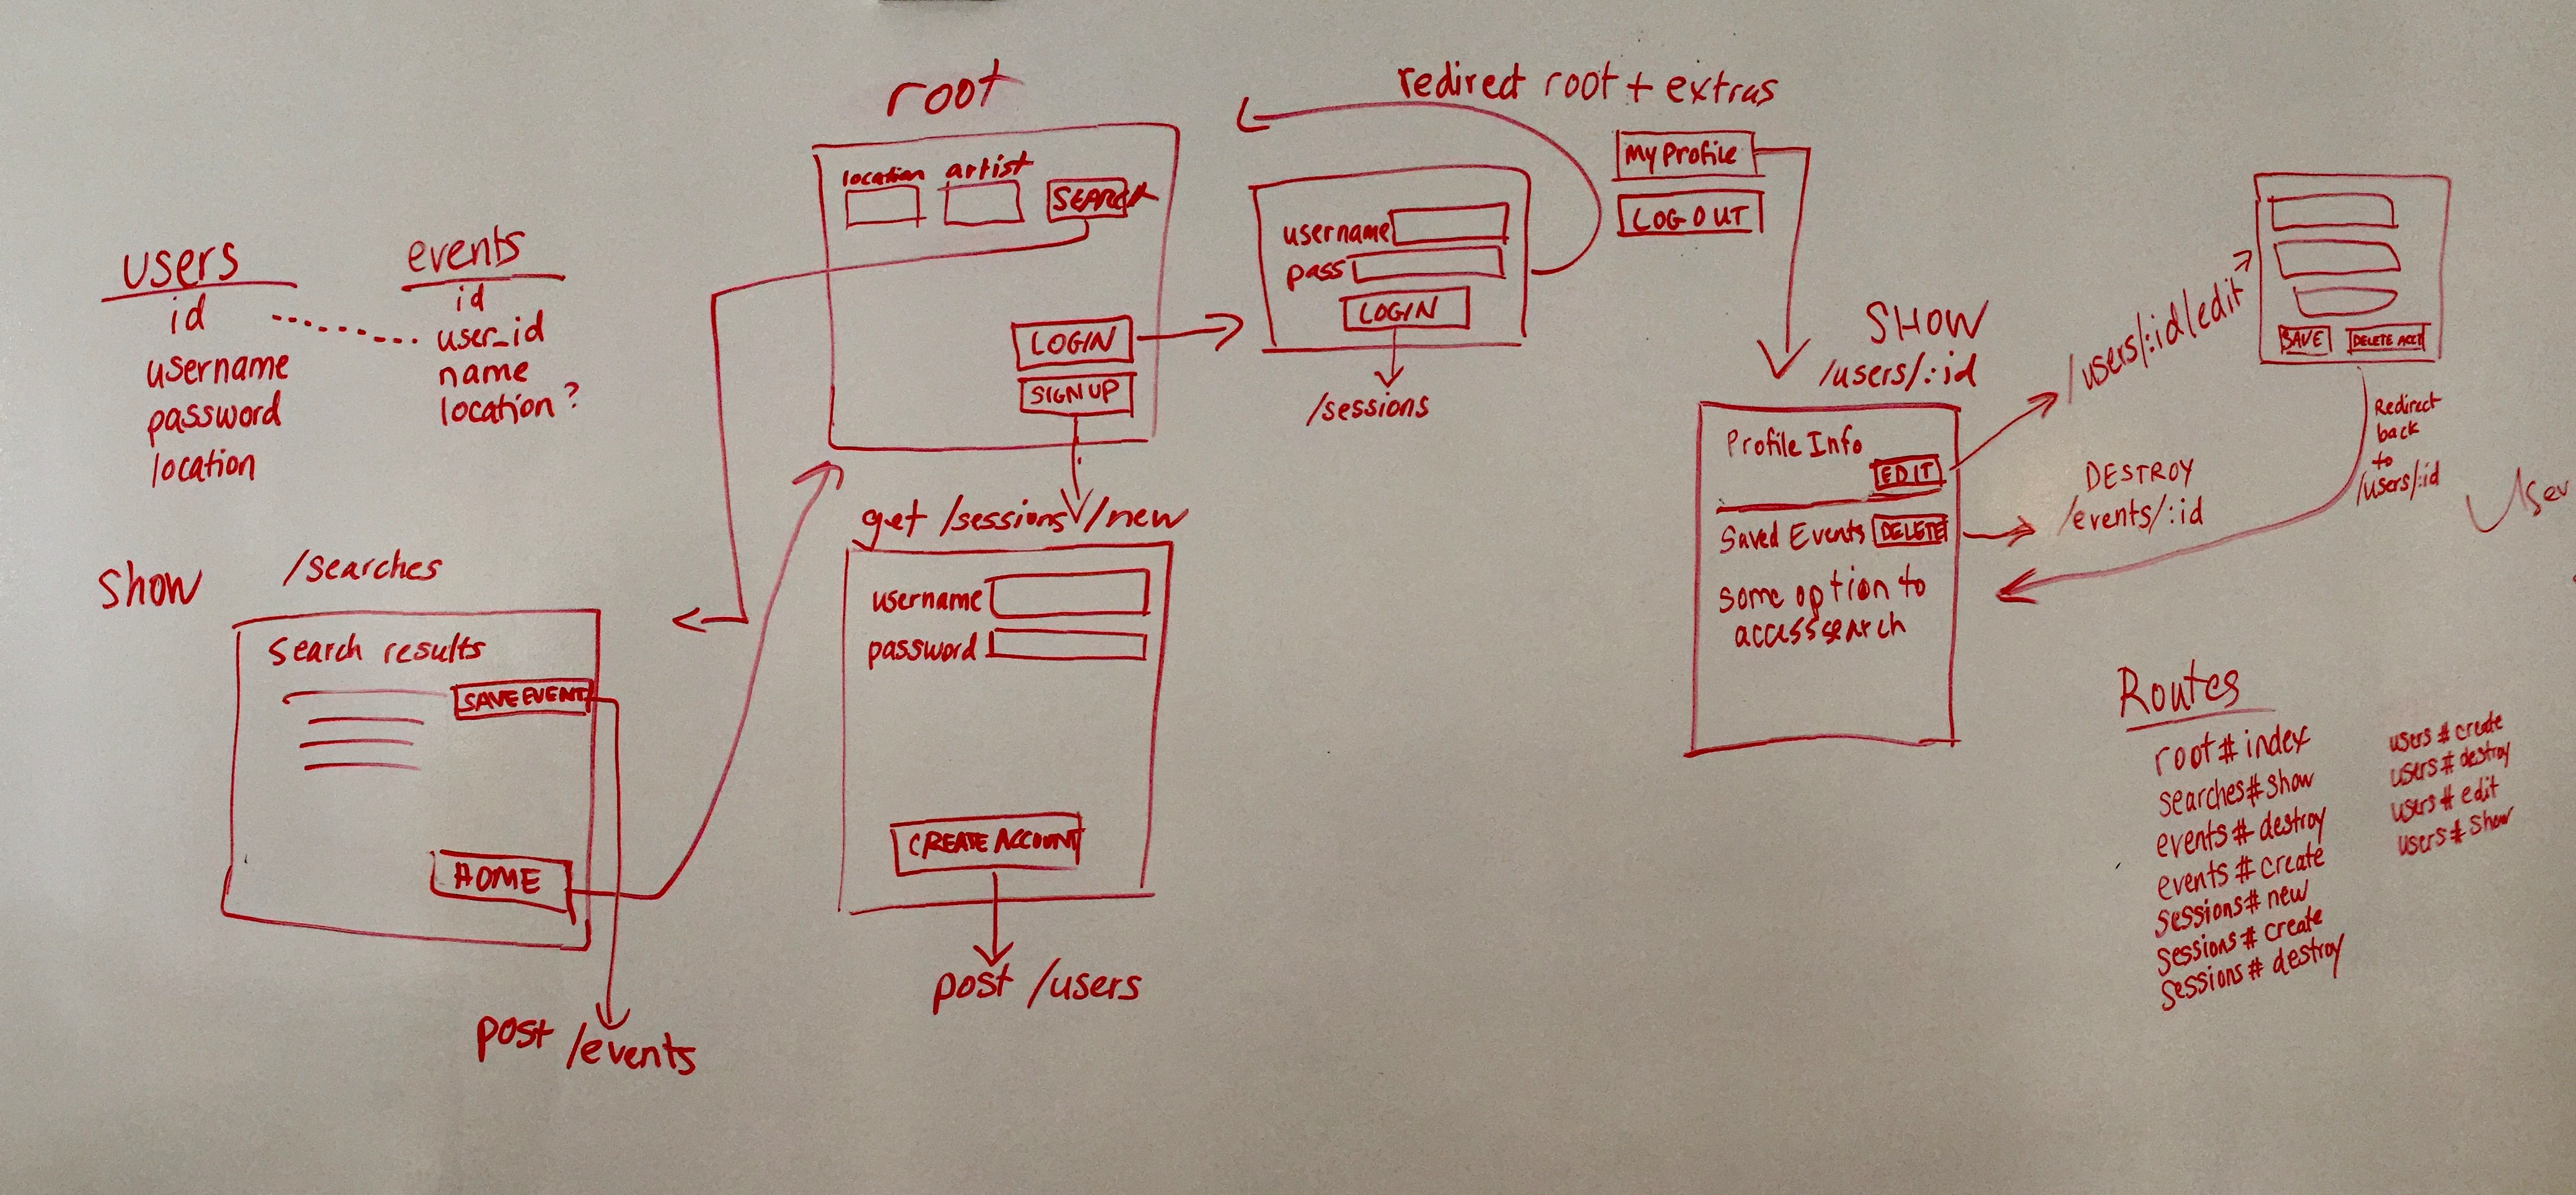 users
id
username
password
location
events
id
user_id
name
location?
show
/searches
Search results
SAVE EVENT
HOME
post /events
root
location
artist
SEARCH
LOGIN
SIGN UP
get /sessions/new
username
password
CREATE ACCOUNT
post /users
redirect root + extras
username
pass
LOGIN
/sessions
My Profile
LOG OUT
SHOW
/users/:id
Profile Info
EDIT
Saved Events
DELETE
some option to
access search
/users/:id/edit
SAVE
DELETE ACCT
Redirect
back
to
/users/:id
DESTROY
/events/:id
User
Routes
root # index
searches # show
events # destroy
events # create
sessions # new
sessions # create
sessions # destroy
users # create
users # destroy
users # edit
users # show